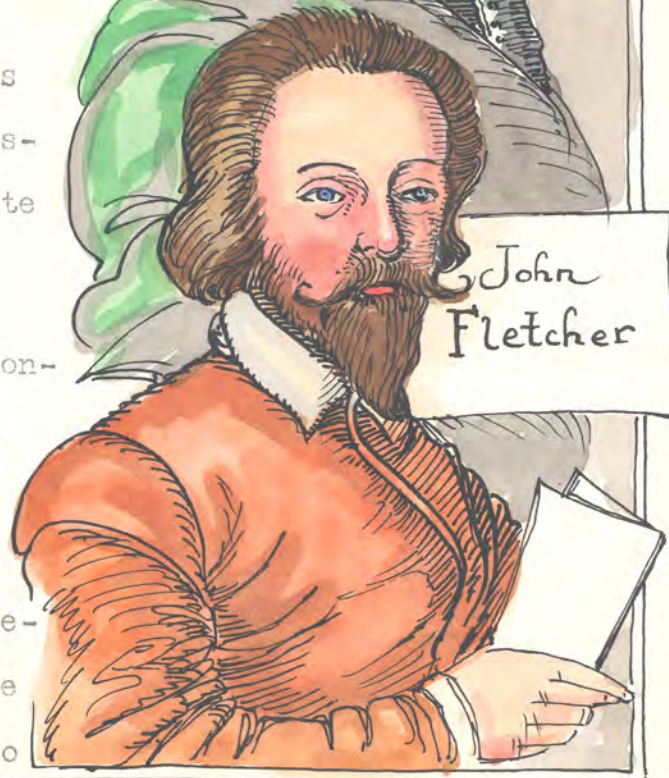 s
s-
te
on-
e-
e
o
John
Fletcher